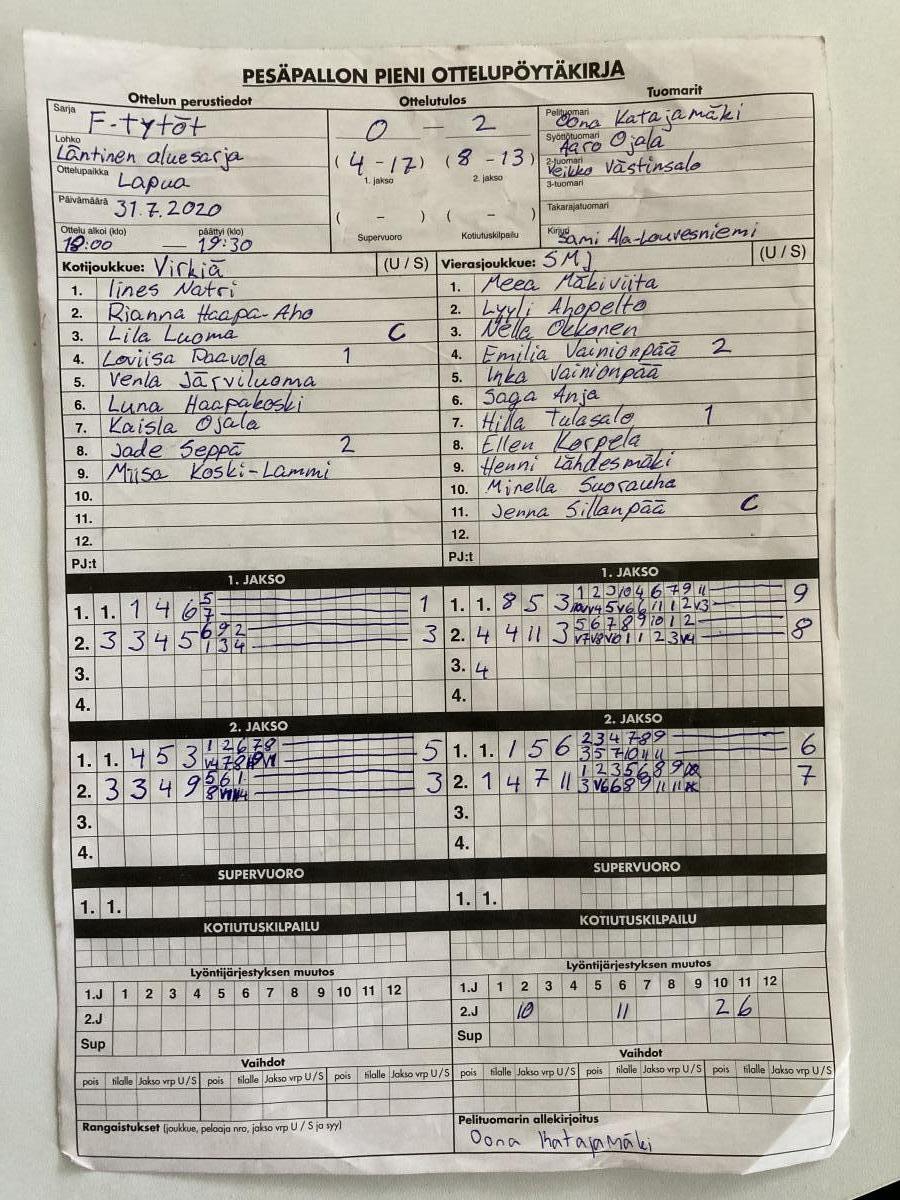 PESÄPALLON PIENI OTTELUPÖYTÄKIRJA
Ottelun perustiedot Ottelutulos Tuomarit
Sarja F-tytöt
Lohko Läntinen aluesarja
Ottelupaikka Lapua
Päivämäärä 31.7.2020
Ottelu alkoi (klo) päättyi (klo)
18:00 — 19:30
0 – 2
(4 – 17) (8 – 13)
1. jakso 2. jakso
( – ) ( – )
Supervuoro Kotiutuskilpailu
Pelituomari Oona Katajamäki
Syöttötuomari Aaro Ojala
2-tuomari Veikko Västinsalo
3-tuomari
Takarajatuomari
Kirjuri Sami Ala-Louvesniemi
Kotijoukkue: Virkiä (U / S)
1. Iines Natri
2. Rianna Haapa-Aho
3. Lila Luoma C
4. Loviisa Paavola 1
5. Venla Järviluoma
6. Luna Haapakoski
7. Kaisla Ojala
8. Jade Seppä 2
9. Miisa Koski-Lammi
10.
11.
12.
PJ:t
Vierasjoukkue: SMJ (U / S)
1. Meea Mäkiviita
2. Lyyli Ahopelto
3. Nella Okkonen
4. Emilia Vainionpää 2
5. Inka Vainionpää
6. Saga Anja
7. Hilla Tulasalo 1
8. Ellen Korpela
9. Henni Lähdesmäki
10. Minella Suorauha
11. Jenna Sillanpää C
12.
PJ:t
1. JAKSO
1. 1. 1 4 6 5 7 1
2. 3 3 4 5 6 9 2 1 3 4 3
3.
4.
1. JAKSO
1. 1. 8 5 3 1 2 3 10 4 6 7 9 11 9
2. 4 4 11 3 5 6 7 8 9 10 1 2 8
3. 4
4.
2. JAKSO
1. 1. 4 5 3 1 2 6 7 8 5
2. 3 3 4 9 5 6 1 3
3.
4.
2. JAKSO
1. 1. 1 5 6 2 3 4 7 8 9 3 5 7 10 11 11 6
2. 1 4 7 11 1 2 3 5 6 8 9 7
3.
4.
SUPERVUORO
1. 1.
SUPERVUORO
1. 1.
KOTIUTUSKILPAILU
KOTIUTUSKILPAILU
Lyöntijärjestyksen muutos
1.J 1 2 3 4 5 6 7 8 9 10 11 12
2.J
Sup
Lyöntijärjestyksen muutos
1.J 1 2 3 4 5 6 7 8 9 10 11 12
2.J 10 11 2 6
Sup
Vaihdot
pois tilalle Jakso vrp U / S pois tilalle Jakso vrp U / S pois tilalle Jakso vrp U / S
Vaihdot
pois tilalle Jakso vrp U / S pois tilalle Jakso vrp U / S pois tilalle Jakso vrp U / S
Rangaistukset (joukkue, pelaaja nro, jakso vrp U / S ja syy)
Pelituomarin allekirjoitus
Oona Katajamäki